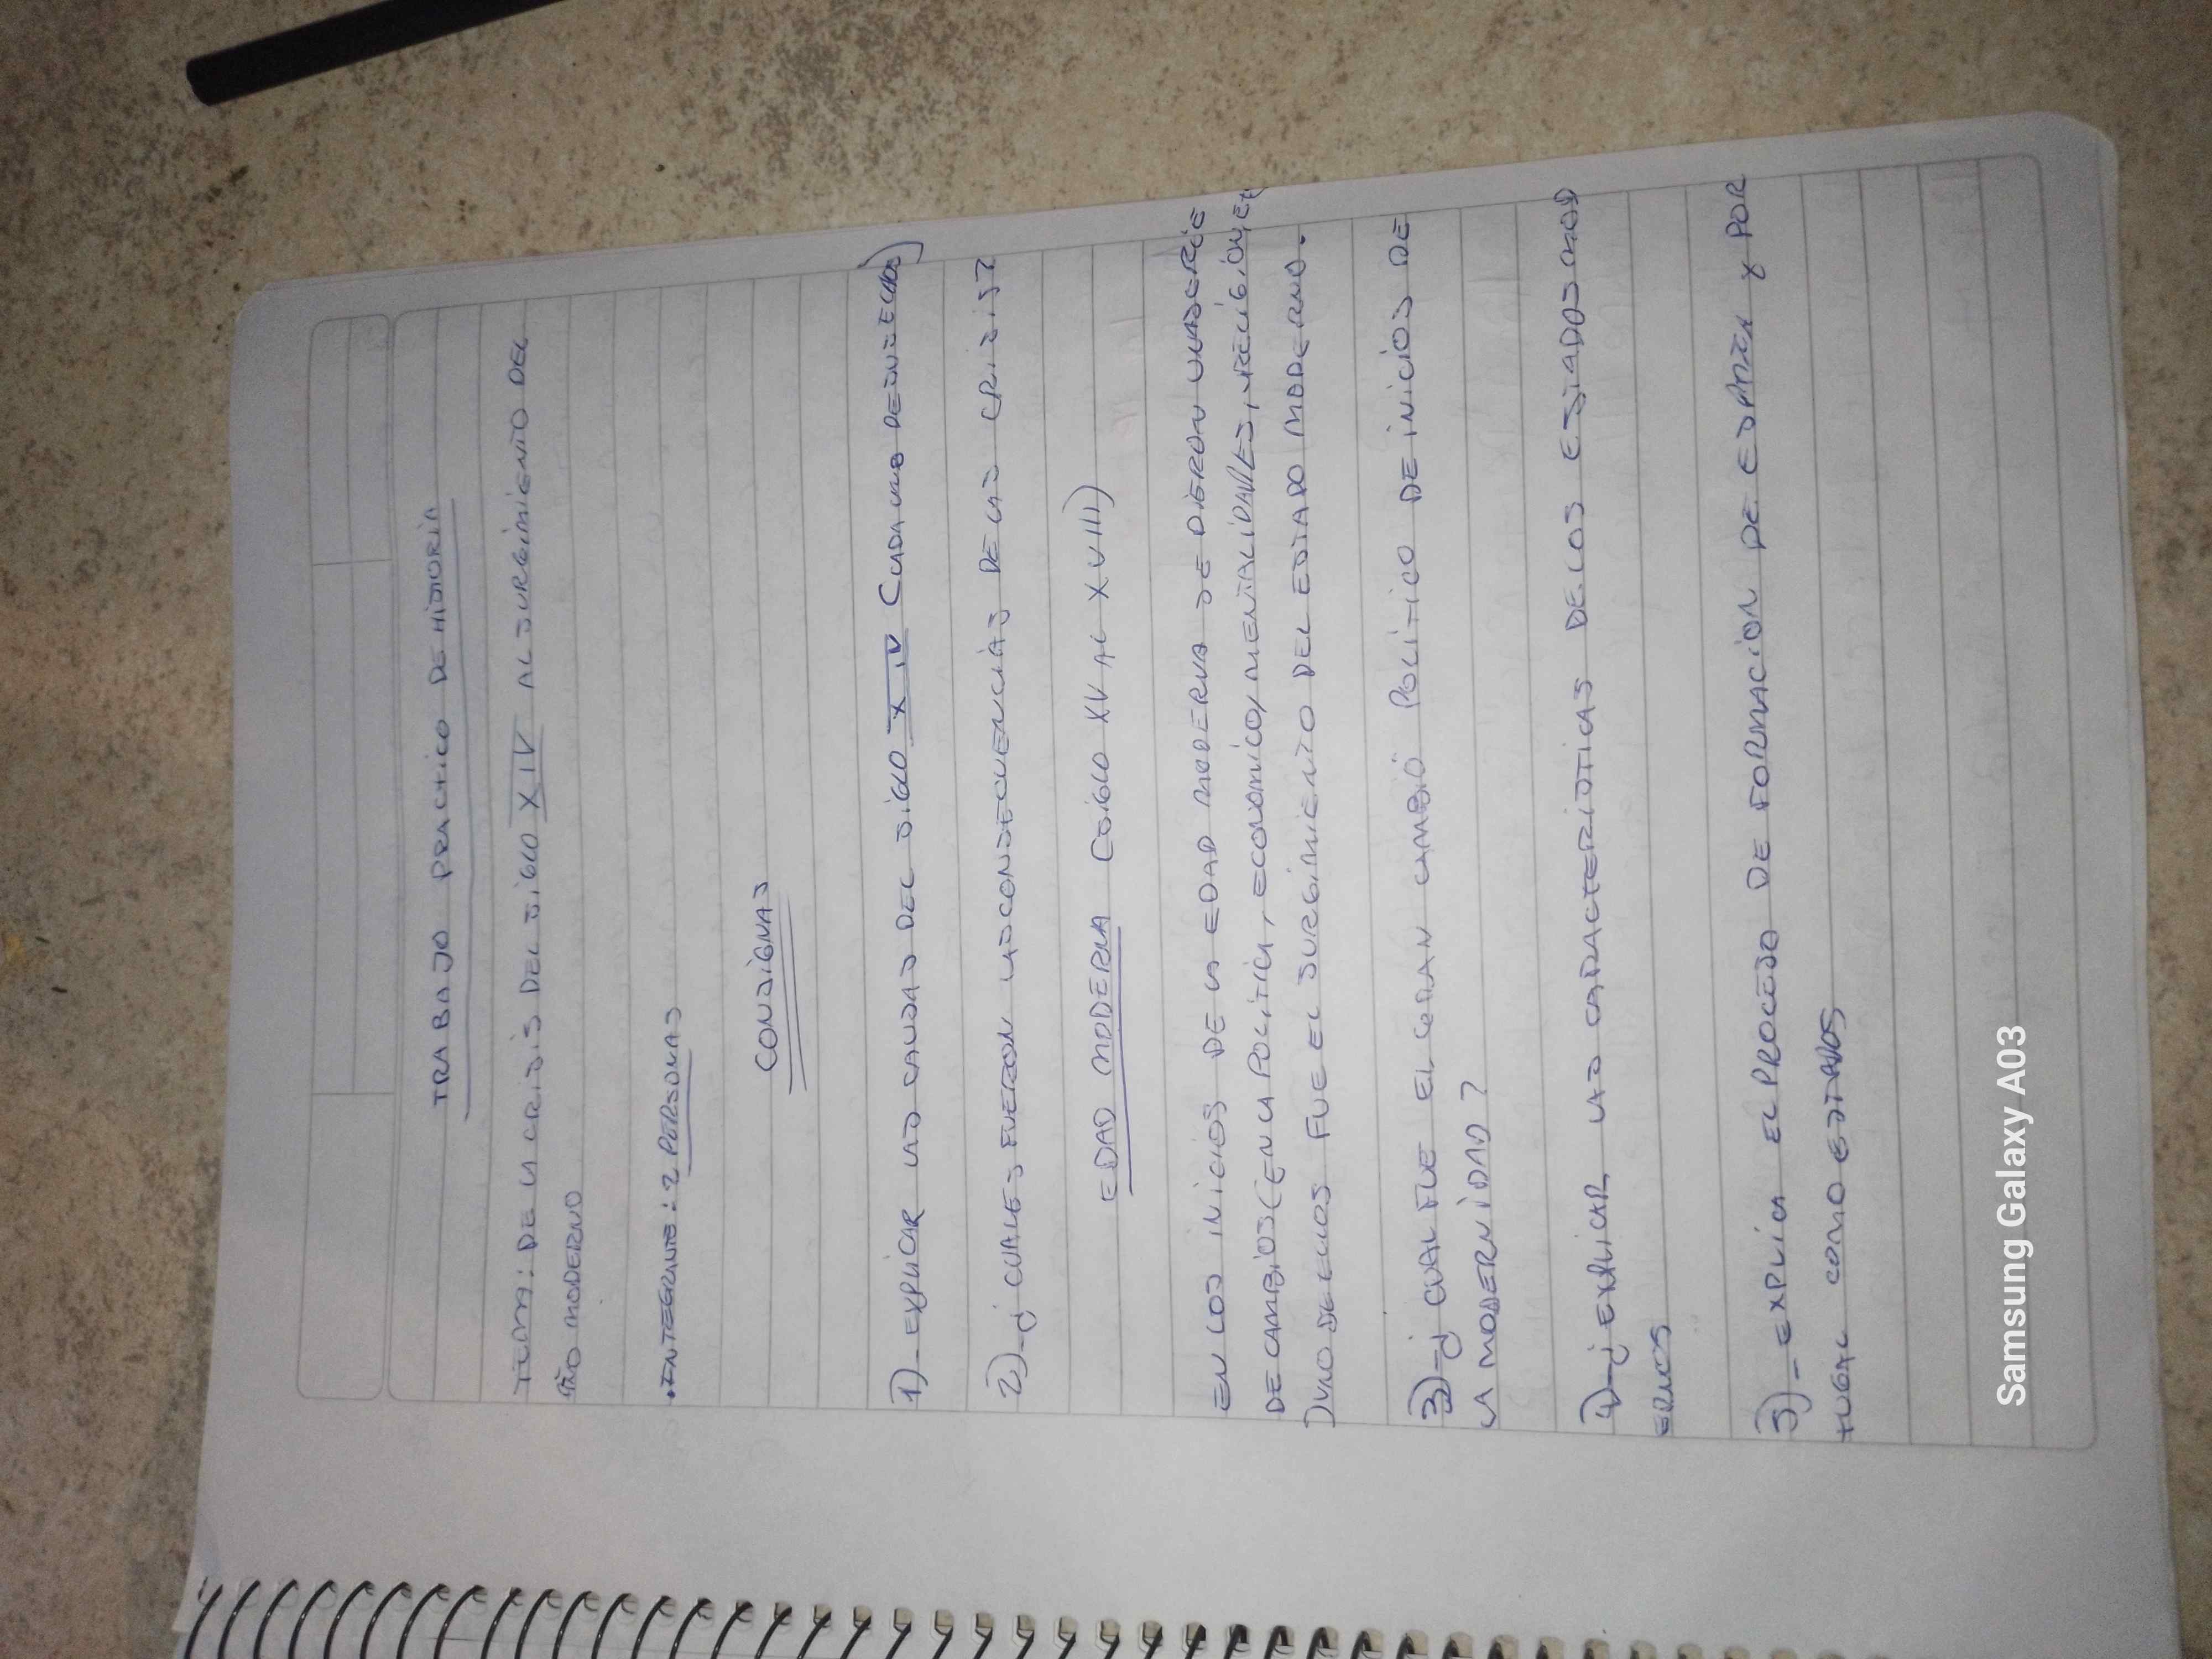 TRABAJO PRACTICO DE HISTORIA
TEMA: DE LA CRISIS DEL SIGLO XIV AL SURGIMIENTO DEL
MODERNO
INTEGRANTES: 2 PERSONAS
CONSIGNAS
1)-EXPLICAR LAS CAUSAS DEL SIGLO XIV (CADA UNA DE SUS ECOS)
2)-¿CUALES FUERON LAS CONSECUENCIAS DE LAS CRISIS?
EDAD MODERNA (SIGLO XV AL XVIII)
EN LOS INICIOS DE LA EDAD MODERNA SE DIERON UNA SERIE
DE CAMBIOS (EN LA POLITICA, ECONOMICO, MENTALIDADES, RELIGIÓN, ETC
)UNO DE ELLOS FUE EL SURGIMIENTO DEL ESTADO MODERNO.
3)-¿CUAL FUE EL GRAN CAMBIO POLITICO DE INICIOS DE
LA MODERNIDAD?
4)-¡EXPLICAR LAS CARACTERISTICAS DE LOS ESTADOS MOD
ERNOS
5)-EXPLICA EL PROCESO DE FORMACION DE ESPAÑA Y POR
TUGAL COMO ESTADOS
Samsung Galaxy A03